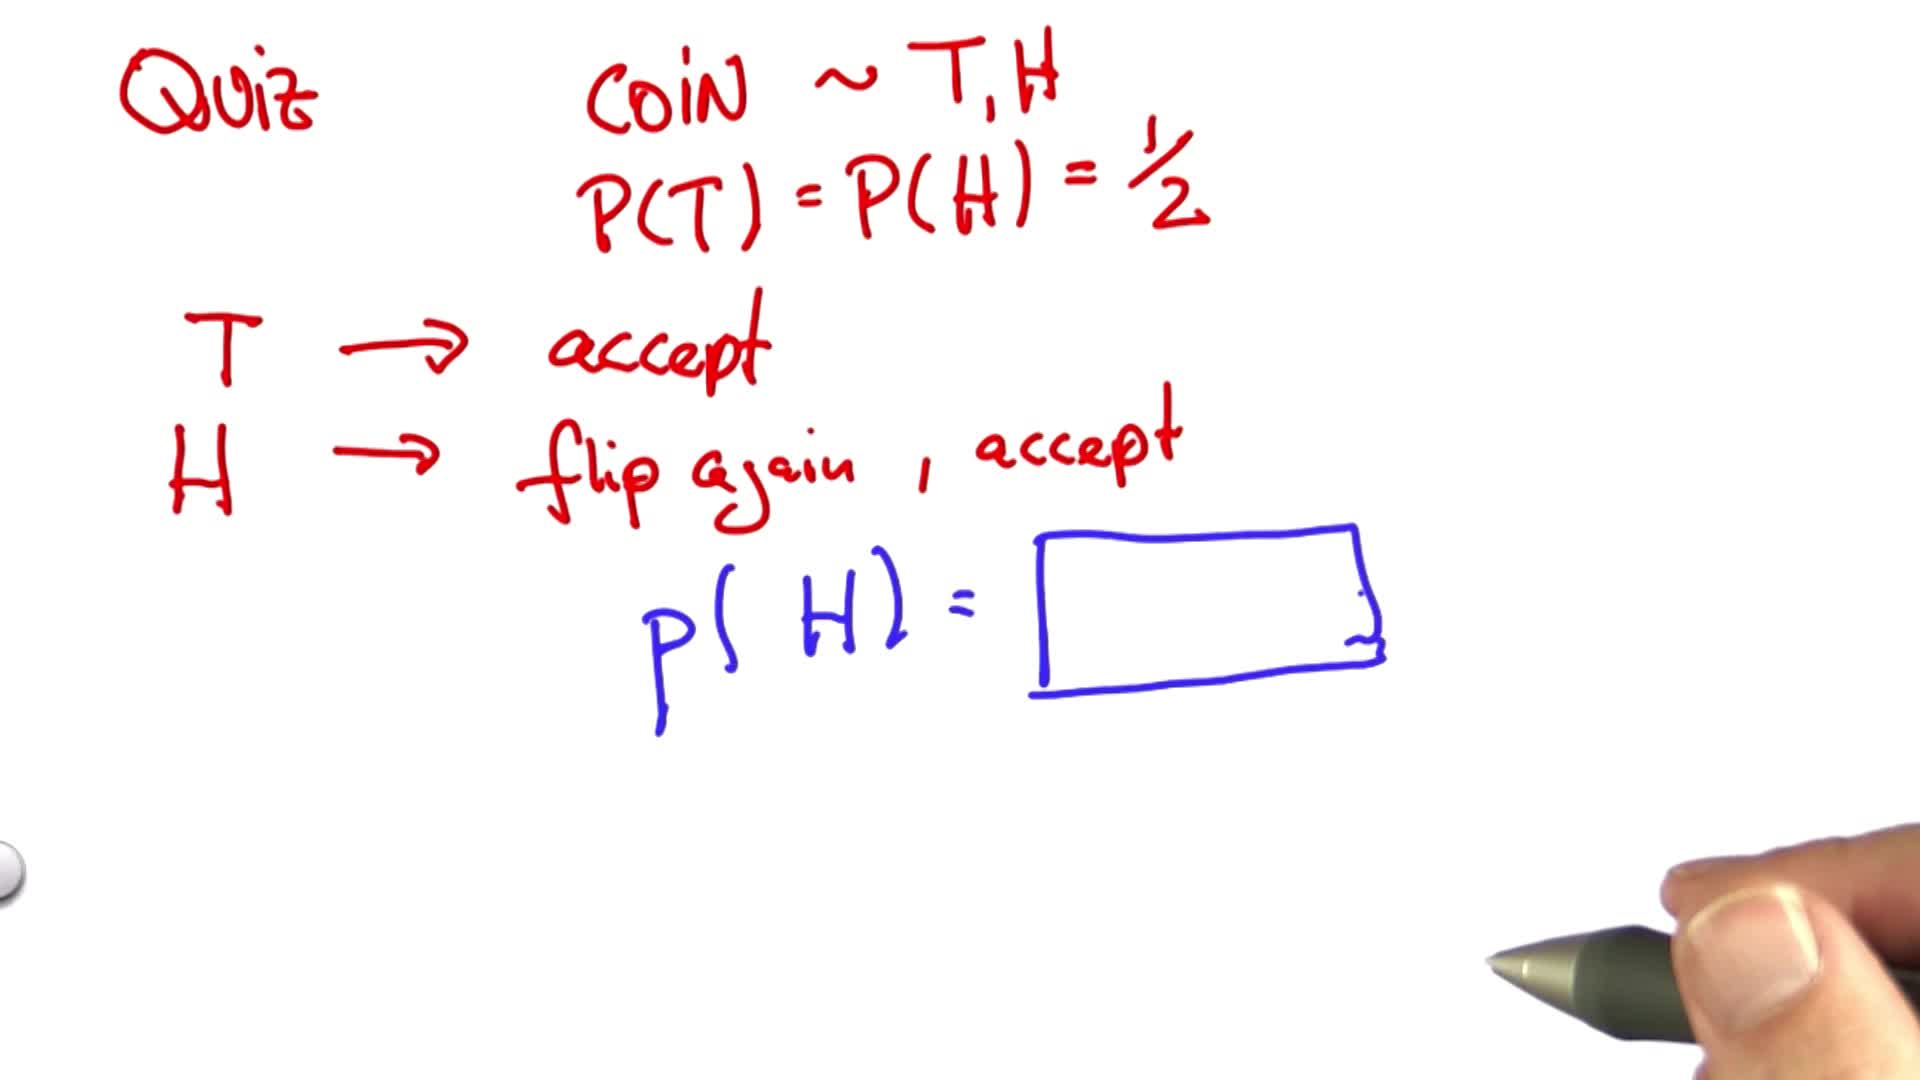 Quiz COIN ~ T, H
P(T) = P(H) = 1/2
T → accept
H → flip again, accept
P(H) =